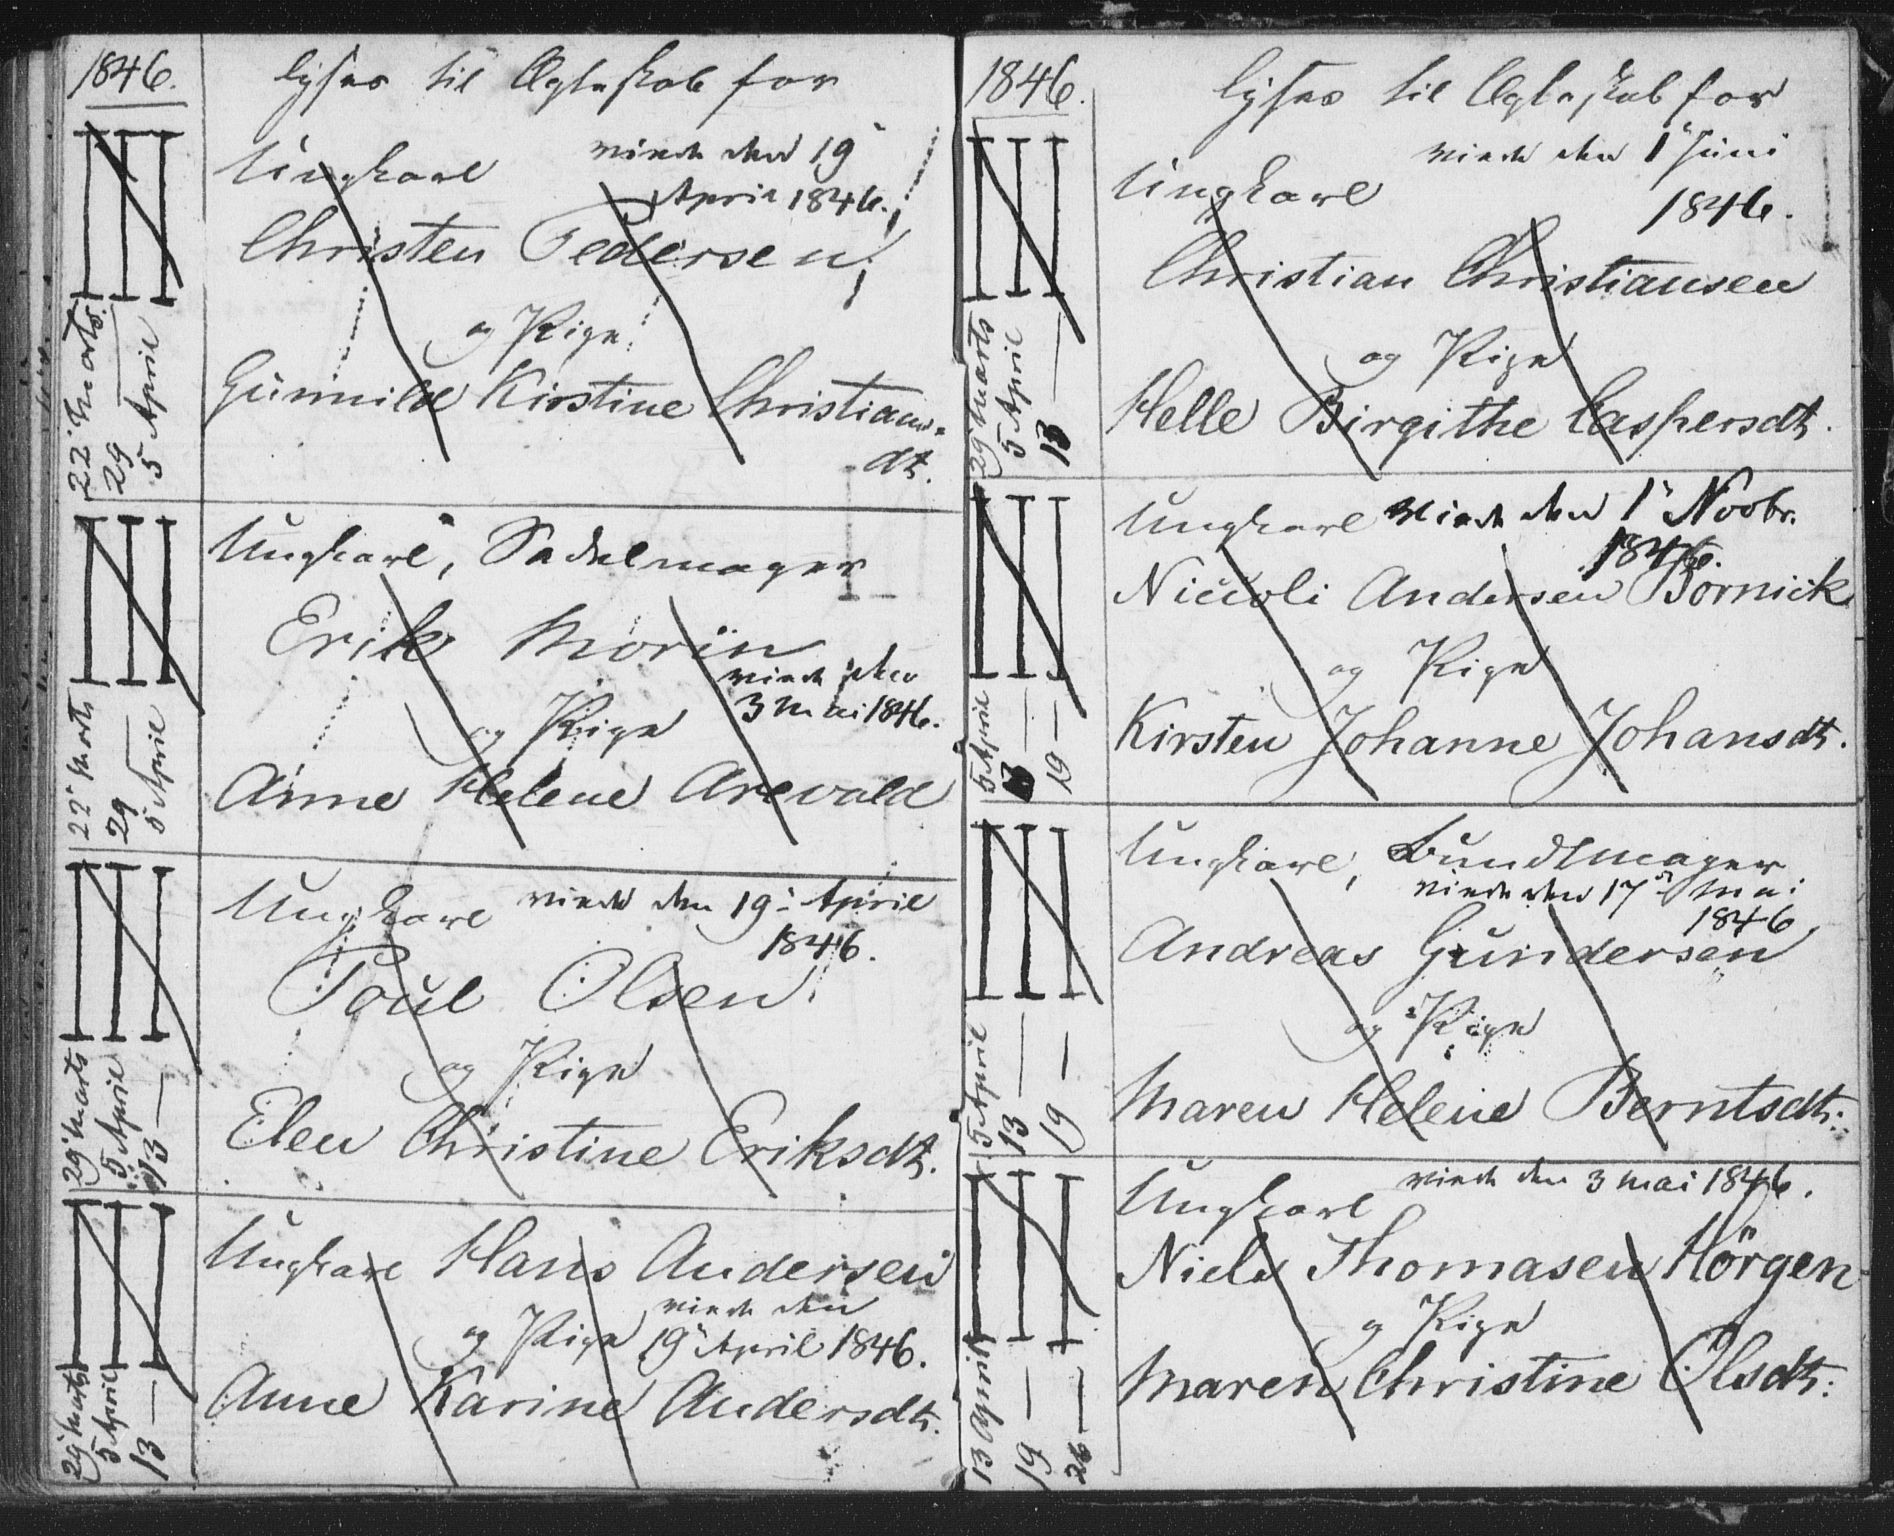 1846.
lyses til Ægteskab for
Ungkarl viede den 19
April 1846.
Christen Pedersen
og Pige
Gunnild Kirstine Christians=
dtr.
22 Marts.
29
5 April
Ungkarl, Sadelmager
Erik Morin
viede den
3 Mai 1846.
og Pige
Anne Helene Arevald
22 Marts
29
5 April
Ungkarl viede den 19 April
1846.
Poul Olsen
og Pige
Elen Christine Eriksdtr.
29 Marts
5 April
13 —
Ungkarl Hans Andersen
viede den
og Pige 19 April 1846.
Anne Karine Andersdtr.
29 Marts
5 April
13 —
1846.
lyses til Ægteskab for
viede den 1 Juni
Ungkarl
1846.
Christian Christiansen
og Pige
Helle Birgithe Caspersdtr.
29 Marts
5 April
13 —
Ungkarl viede den 1 Novbr.
1846.
Niccoli Andersen Bornick
og Pige
Kirsten Johanne Johansdtr.
5 April
13 —
19 —
Ungkarl, Bundtmager
viede den 17 Mai
1846
Andreas Gundersen
og Pige
Maren Helene Berntsdtr.
5 April
13 —
19 —
Ungkarl viede den 3 Mai 1846.
Niels Thomasen Hörgen
og Pige
Maren Christine Olsdtr:
13 April
19 —
26 —